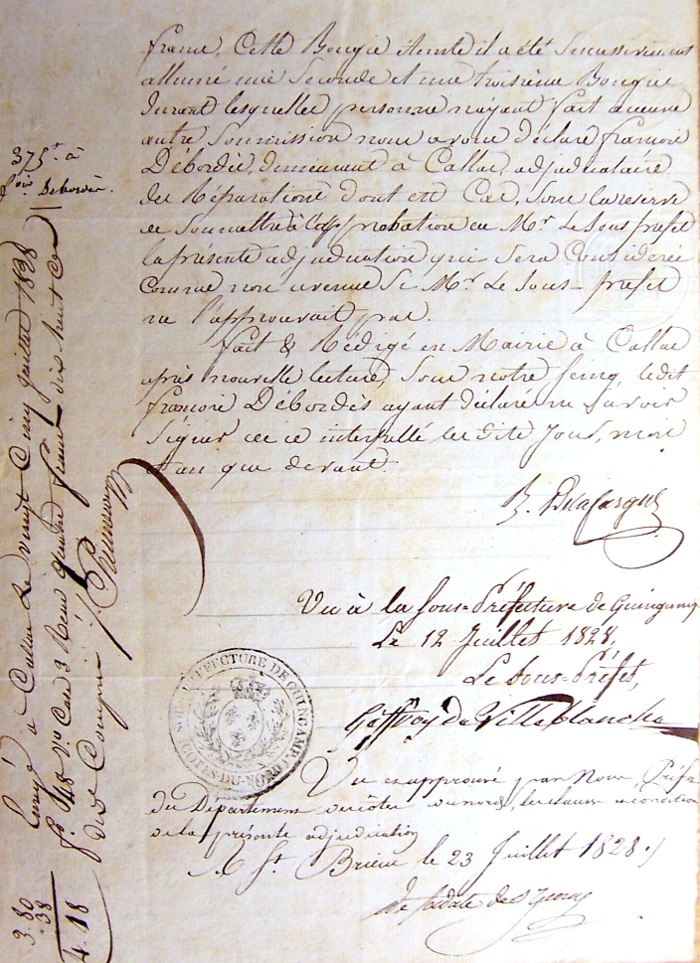 francs, Cette Bougie éteinte il a été Successivement
allumé une Seconde et une troisième Bougie
durant lesquelles personne n'ayant fait aucune
autre Soumission nous avons déclaré françois
Débordés, demeurant à Callac, adjudicataire
des Réparations dont est Cas, Sous la reserve
de Soumettre à l'approbation de Mr. Le Sous préfet
la présente adjudication qui Sera Considérée
Comme non avenue Si Mr. Le Sous-préfet
ne l'approuvait pas.
fait & Rédigé en Mairie à Callac
après nouvelle lecture, Sous notre Seing, ledit
françois Débordés ayant déclaré ne Savoir
Signer de ce interpellé les dits Jour, mois
et an que devant.
Vu à la Sous-Préfecture de Guingamp
Le 12 Juillet 1828.
Le Sous-Préfet,
SOUS-PRÉFECTURE DE GUINGAMP
COTES-DU-NORD
Vu et approuvé par Nous, Préfet
du Département des côtes du nord, les clauses et conditions
de la présente adjudication
A St. Brieuc le 23 Juillet 1828.
375 f. à
fois Débordés.
à Callac le vingt Cinq Juillet 1828
fo. 48 Vo Case 3 Reçu
dixe Compris
3.80
38
4.18